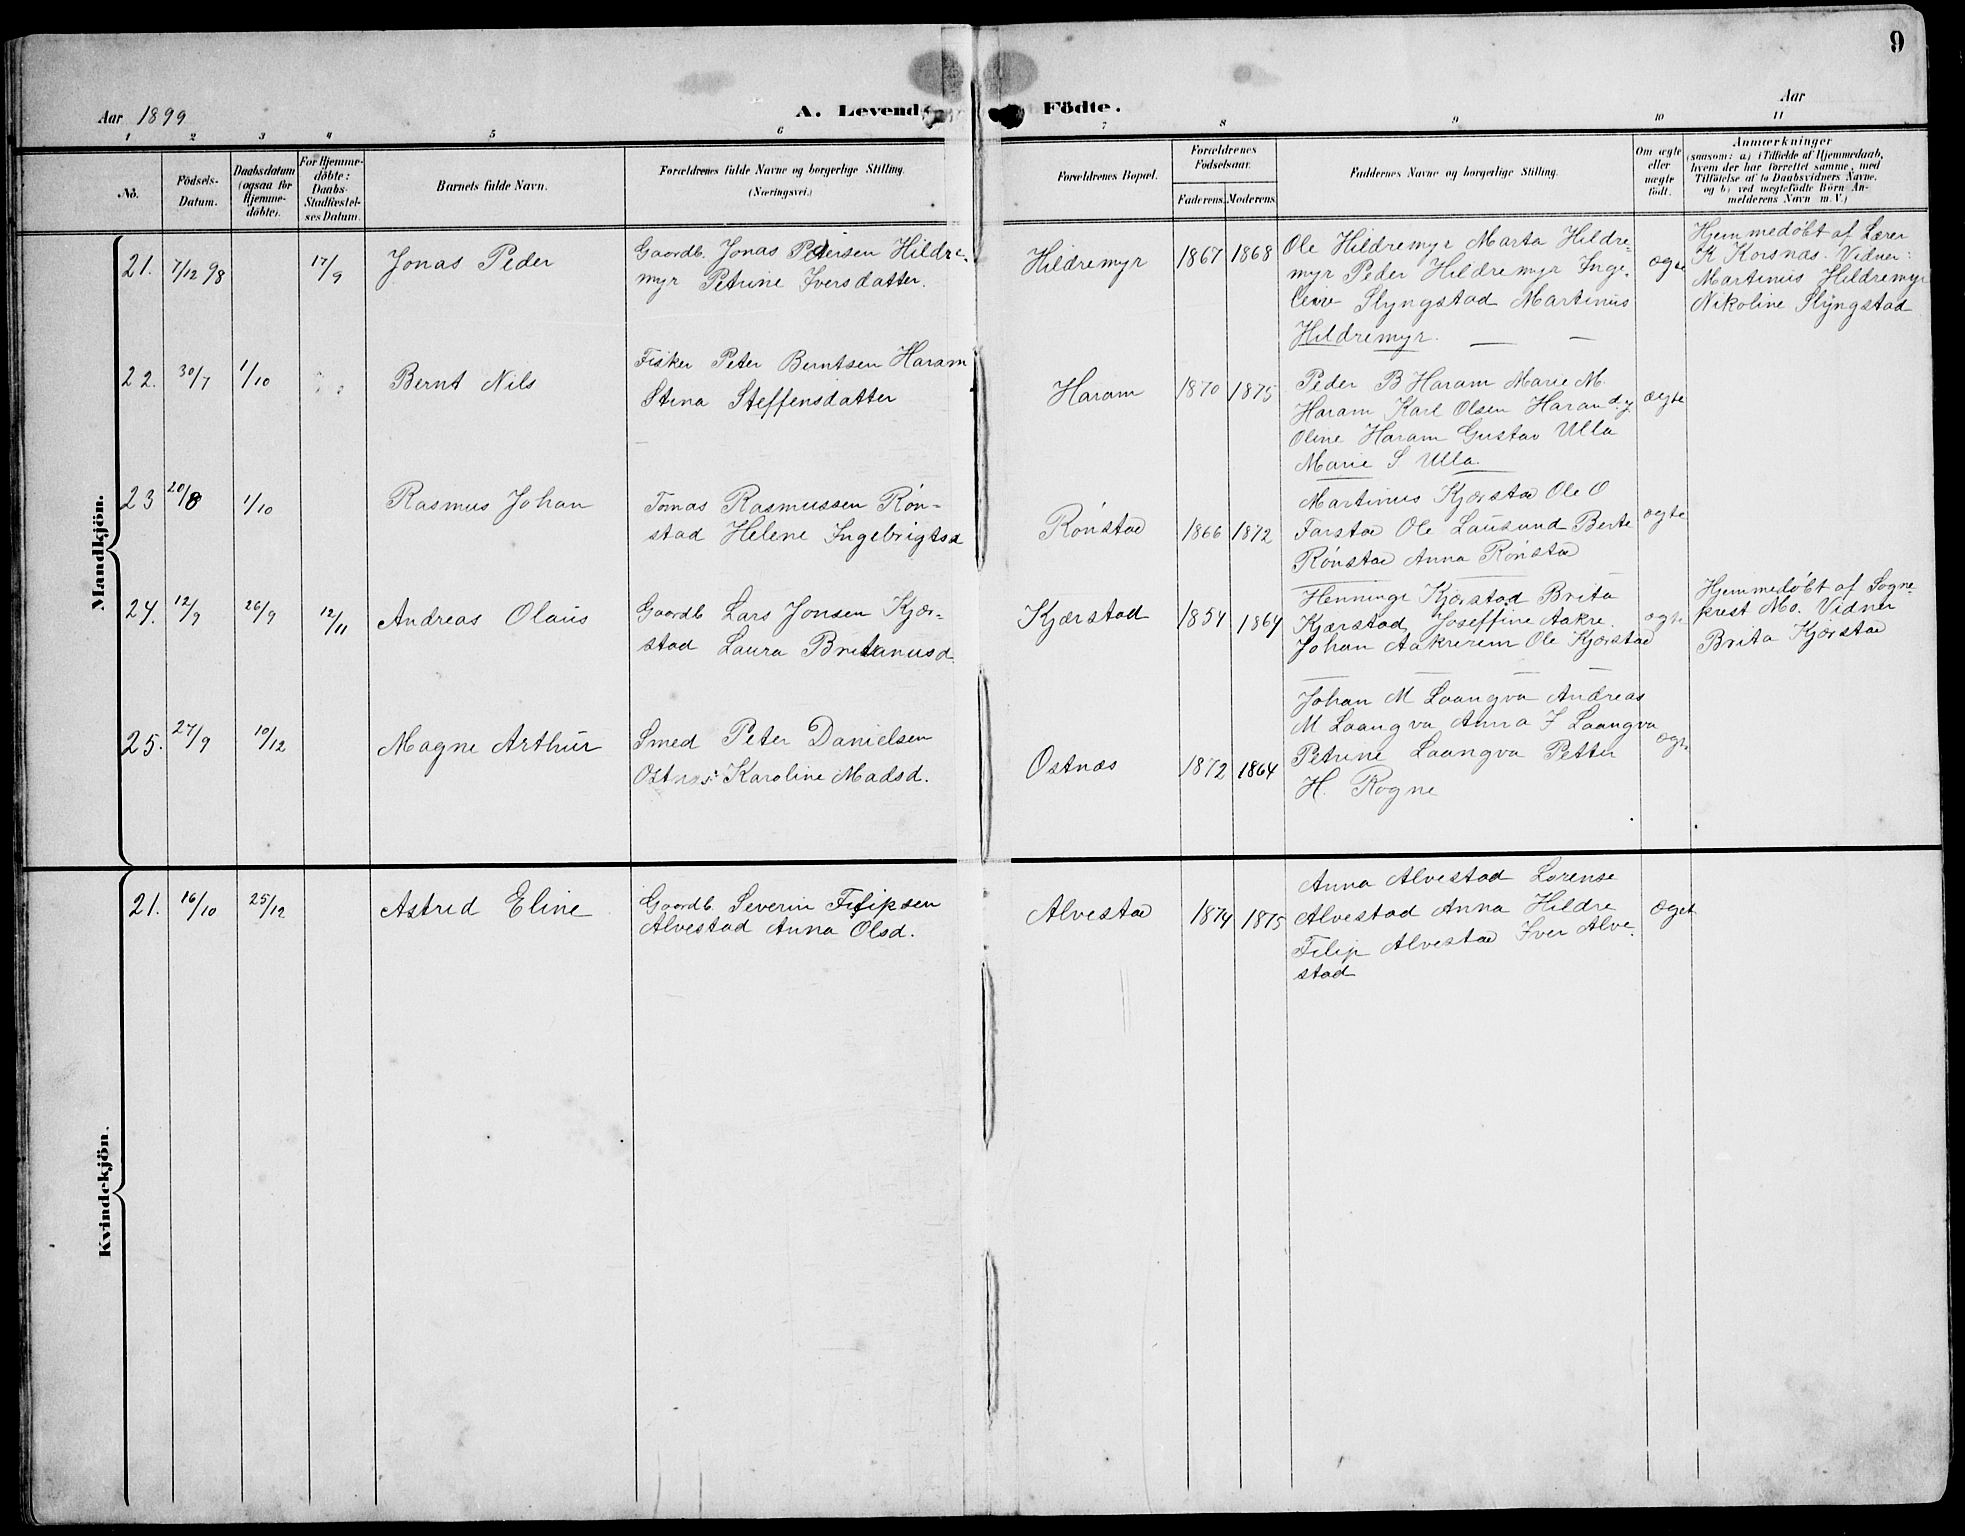 9
Aar 1899
A. Levende Födte.
Aar
1 2 3 4 5 6 7 8 9 10 11
No.
Födsels-
Datum.
Daabsdatum
(ogsaa for
Hjemme-
döbte).
For Hjemme-
döbte:
Daabs-
Stadfæstel-
ses Datum.
Barnets fulde Navn.
Forældrenes fulde Navne og borgerlige Stilling.
(Næringsvei.)
Forældrenes Bopæl.
Forældrenes
Födselsaar.
Faderens. Moderens.
Faddernes Navne og borgerlige Stilling.
Om ægte
eller
uægte
födt.
Anmærkninger
(saasom: a) i Tilfælde af Hjemmedaab,
hvem der har forrettet samme, med
Tilföielse af to Daabsvidners Navne,
og b) ved uægtefödte Börn An-
melderens Navn m. V.)
Mandkjön.
21. 7/12 98 17/9 Jonas Peder
Gaardb. Jonas Petersen Hildre-
myr Petrine Iversdatter.
Hildremyr 1867 1868
Ole Hildremyr Marta Hildre-
myr Peder Hildremyr Inge-
leive Slyngstad Martinus
Hildremyr.
ægte
Hjemmedøbt af Lærer
K Korsnæs. Vidner:
Martinus Hildremyr
Nikoline Slyngstad
22. 30/7 1/10 Bernt Nils
Fisker Peter Berntsen Haram
Stina Steffensdatter
Haram 1870 1875
Peder B Haram Marie M.
Haram Karl Olsen Haram d.y
Oline Haram Gustav Ulla
Marie S Ulla.
ægte
23 20/8 1/10 Rasmus Johan
Tomas Rasmussen Røn-
stad Helene Ingebrigtsd
Rønstad 1866 1872
Martinus Kjærstad Ole O
Farstad Ole Lausund Berte
Rønstad Anna Rønstad
ægte
24. 12/9 26/9 12/11 Andreas Olaus
Gaardb Lars Jonsen Kjær-
stad Laura Britanusd.
Kjærstad 1854 1864
Henninge Kjærstad Brita
Kjærstad, Joseffine Aakre.
Johan Aakrerem Ole Kjærstad
ægte
Hjemmedøbt af Sogne-
prest Mo. Vidner
Brita Kjærstad
25. 27/9 10/12 Magne Arthur
Smed Peter Danielsen
Ostnæs: Karoline Madsd.
Ostnæs 1872 1864
Johan M Laangva Andreas
M Laangva Anna J Laangva
Petrine Laangva Petter
H. Rogne
ægte
Kvindekjön.
21. 16/10 25/12 Astrid Eline
Gaardb. Severin Filipsen
Alvestad Anna Olsd.
Alvestad 1874 1875
Anna Alvestad Lorense
Alvestad Anna Hildre
Filip Alvestad Iver Alve-
stad
Æget